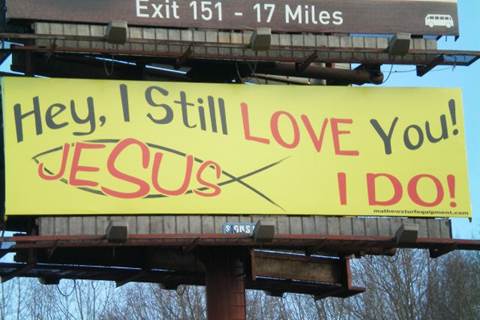 Exit 151 - 17 Miles
Hey, I Still LOVE You!
JESUS I DO!
mathewsturfequipment.com